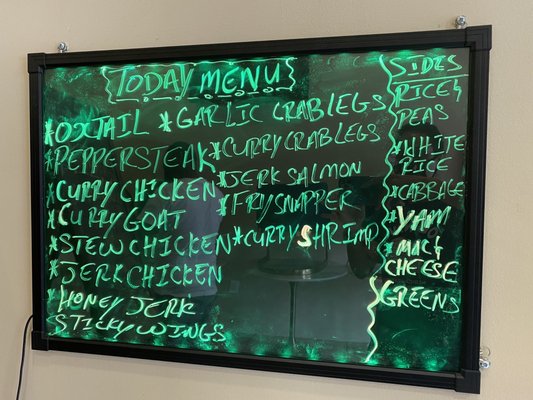 TODAY MENU
*OXTAIL
*PEPPERSTEAK
*CURRY CHICKEN
*CURRY GOAT
*STEW CHICKEN
*JERK CHICKEN
*HONEY JERK
STICKY WINGS
*GARLIC CRAB LEGS
*CURRY CRAB LEGS
*JERK SALMON
*FRY SNAPPER
*CURRY SHRIMP
SIDES
RICE &
PEAS
*WHITE
RICE
*CABBAGE
*YAM
*MAC &
CHEESE
GREENS